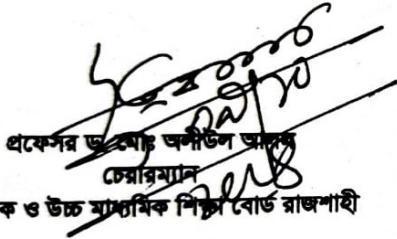 প্রফেসর ড. মোঃ অলীউল আলম
চেয়ারম্যান
ক ও উচ্চ মাধ্যমিক শিক্ষা বোর্ড রাজশাহী